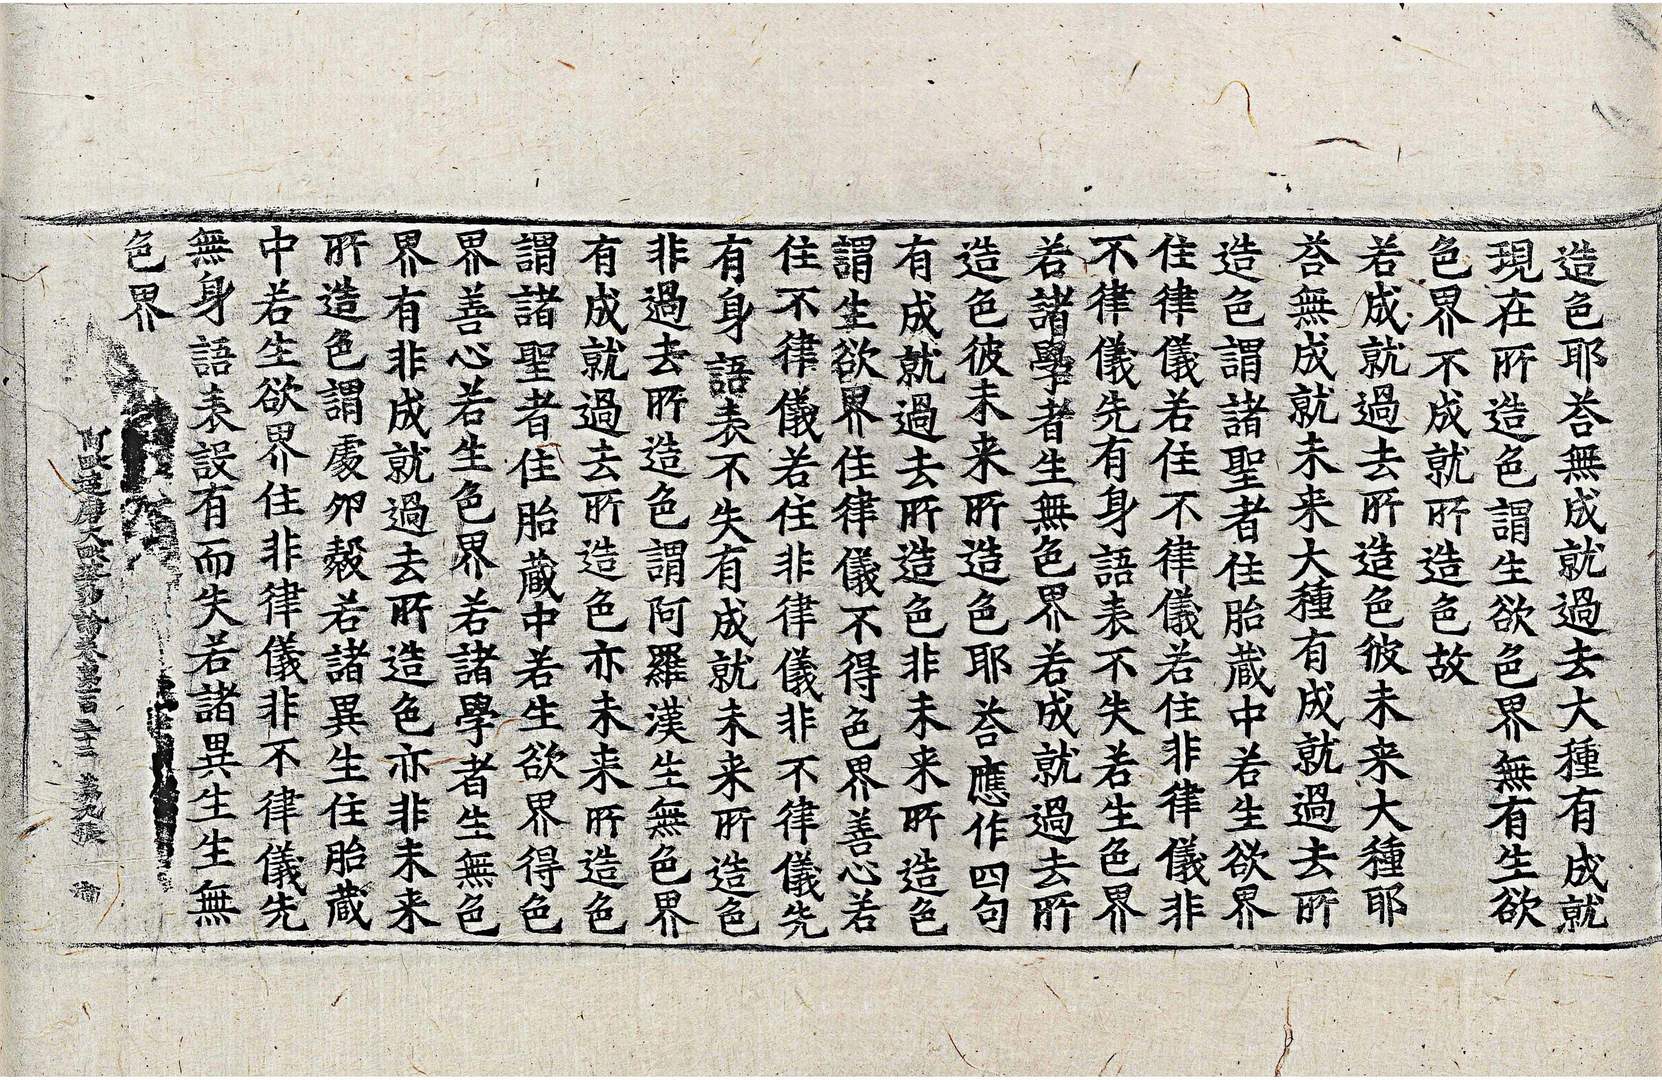 造色耶荅無成就過去大種有成就
現在所造色謂生欲色界無有生欲
色界不成就所造色故
若成就過去所造色彼未来大種耶
荅無成就未来大種有成就過去所
造色謂諸聖者住胎蔵中若生欲界
住律儀若住不律儀若住非律儀非
不律儀先有身語表不失若生色界
若諸學者生無色界若成就過去所
造色彼未来所造色耶荅應作四句
有成就過去所造色非未来所造色
謂生欲界住律儀不得色界善心若
住不律儀若住非律儀非不律儀先
有身語表不失有成就未来所造色
非過去所造色謂阿羅漢生無色界
有成就過去所造色亦未来所造色
謂諸聖者住胎蔵中若生欲界得色
界善心若生色界若諸學者生無色
界有非成就過去所造色亦非未来
所造色謂處卵㲉若諸異生住胎蔵
中若生欲界住非律儀非不律儀先
無身語表設有而失若諸異生生無
色界
阿毗達磨大毗婆沙論 第九張